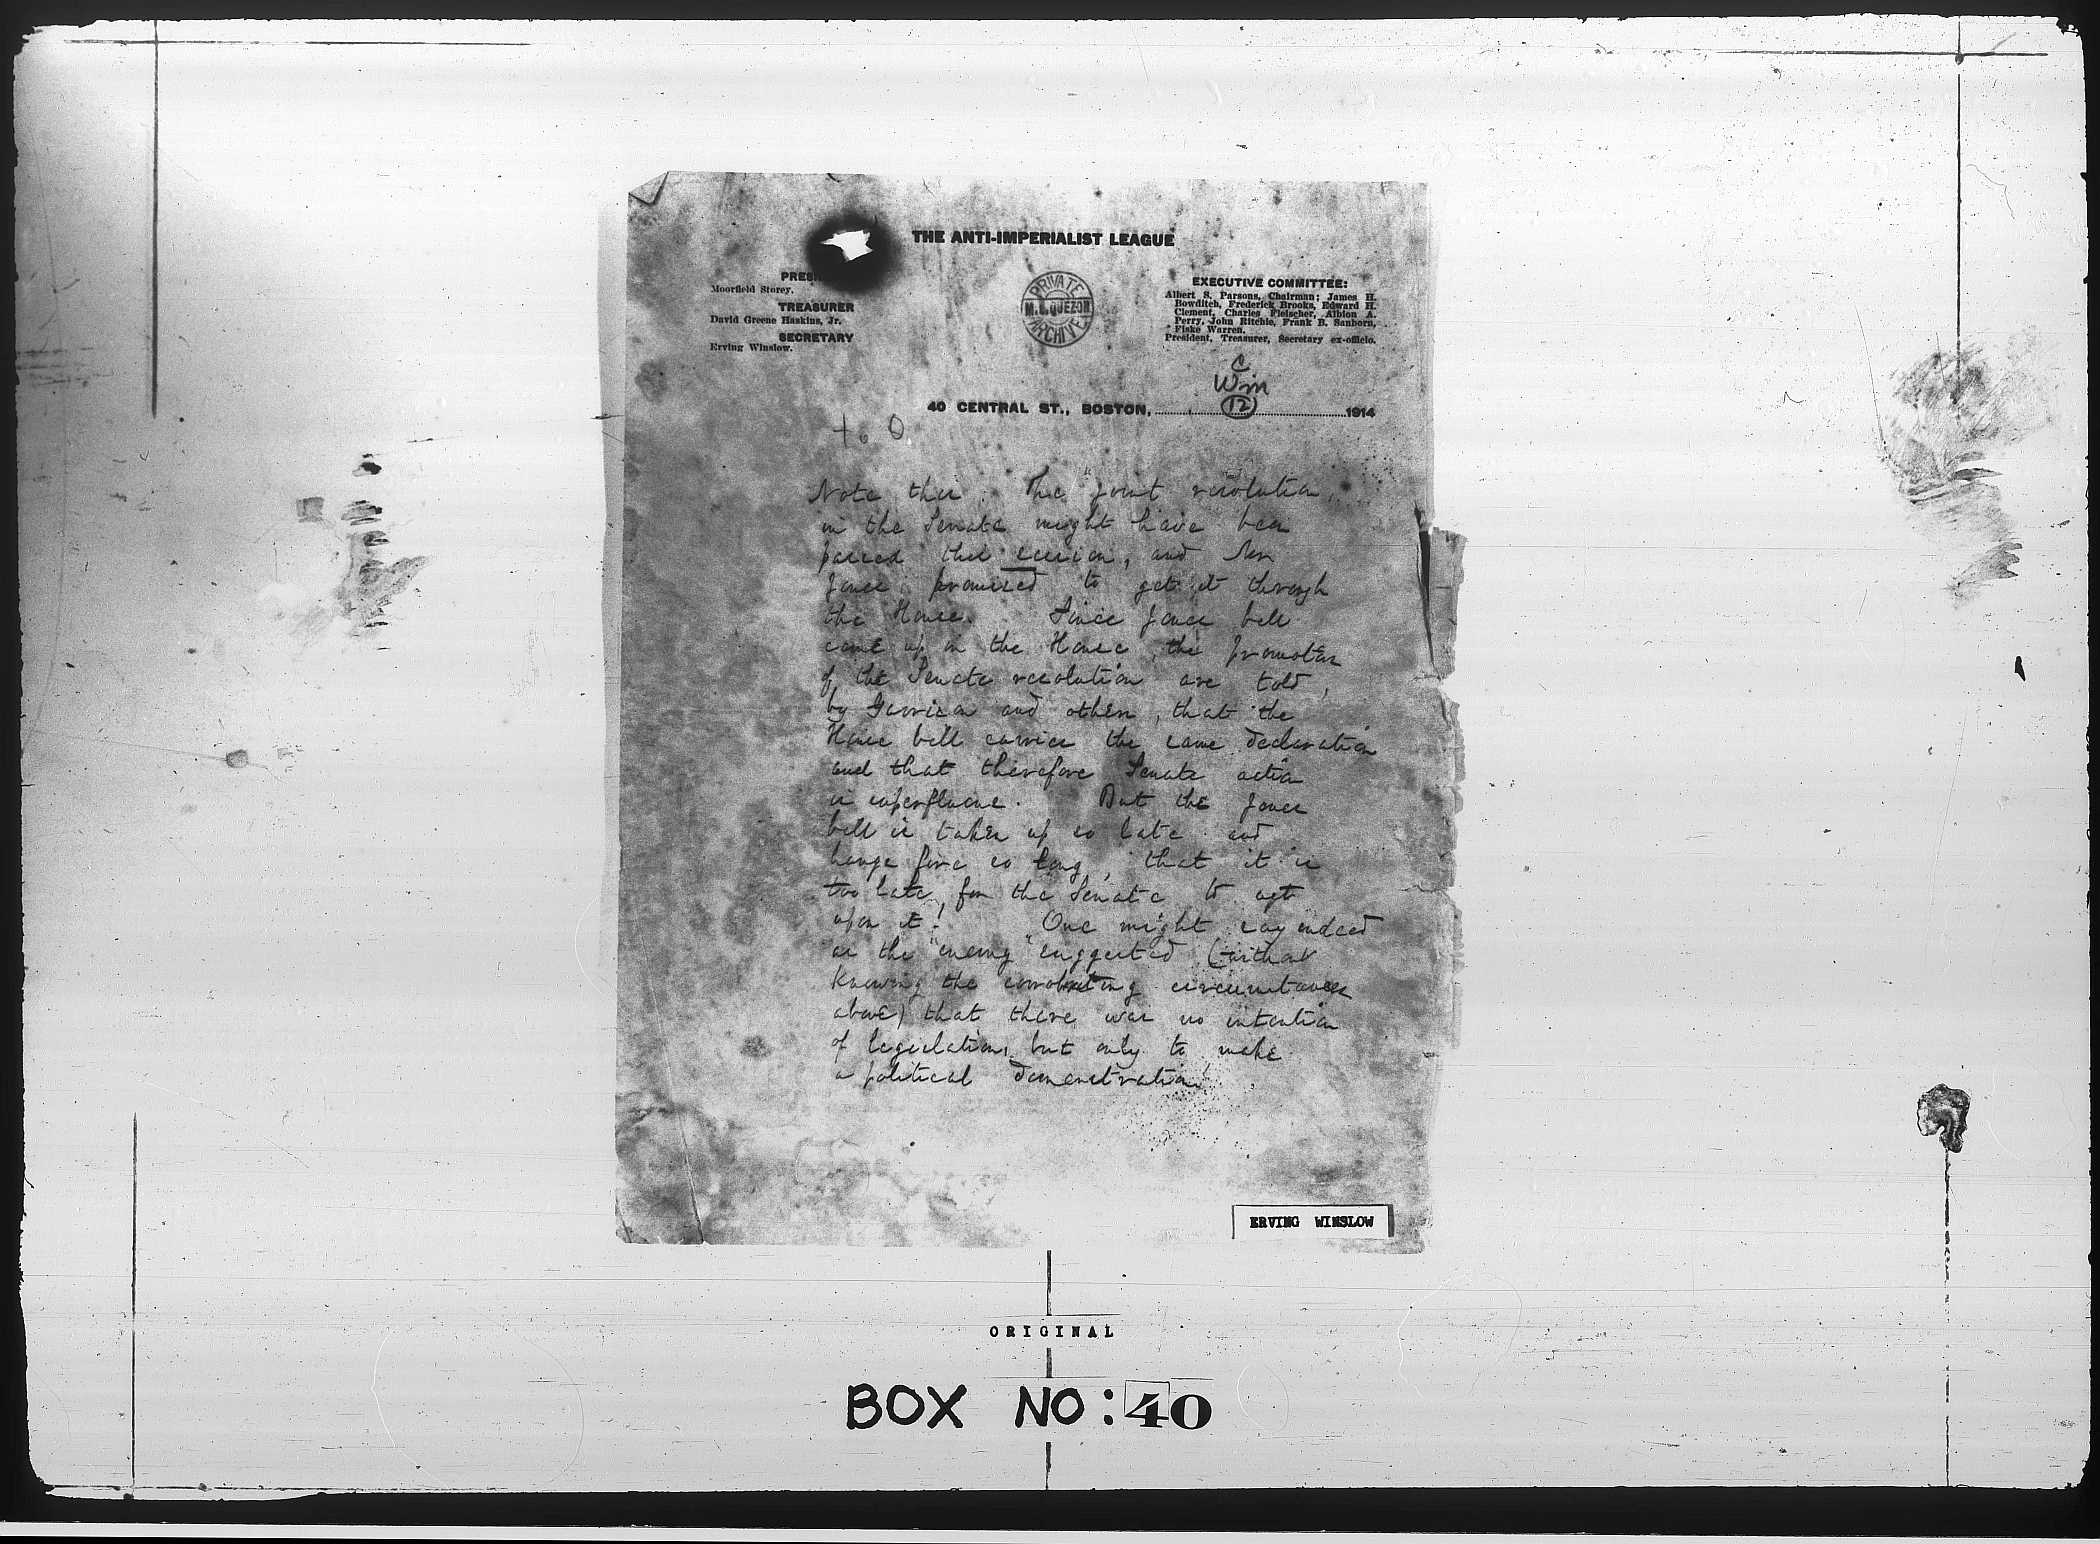 THE ANTI-IMPERIALIST LEAGUE
PRES
Moorfield Storey.
TREASURER
David Greene Haskins, Jr.
SECRETARY
Erving Winslow.
PRIVATE
M.L.QUEZON
ARCHIVE
EXECUTIVE COMMITTEE:
Albert S. Parsons, Chairman; James H.
Bowditch, Frederick Brooks, Edward H.
Clement, Charles Fleischer, Albion A.
Perry, John Ritchie, Frank B. Sanborn,
Fiske Warren.
President, Treasurer, Secretary ex-officio.
C
Win
12
40 CENTRAL ST., BOSTON, 1914
Note this. The "joint resolution,
in the Senate might have been
passed this session, and
Jones promised to get it through
the House. Since Jones bill
came up in the House, the promoters
of the Senate resolution are told,
by Garrison and others, that the
House bill carries the same declaration
and that therefore Senate action
is superfluous. But the Jones
bill is taken up so late and
hangs fire so long, that it is
too late, for the Senate to act
upon it! One might say indeed
as the "enemy" suggested (without
knowing the corroborating circumstances
above) that there was no intention
of legislation, but only to make
a political demonstration!
ERVING WINSLOW
ORIGINAL
BOX NO: 40